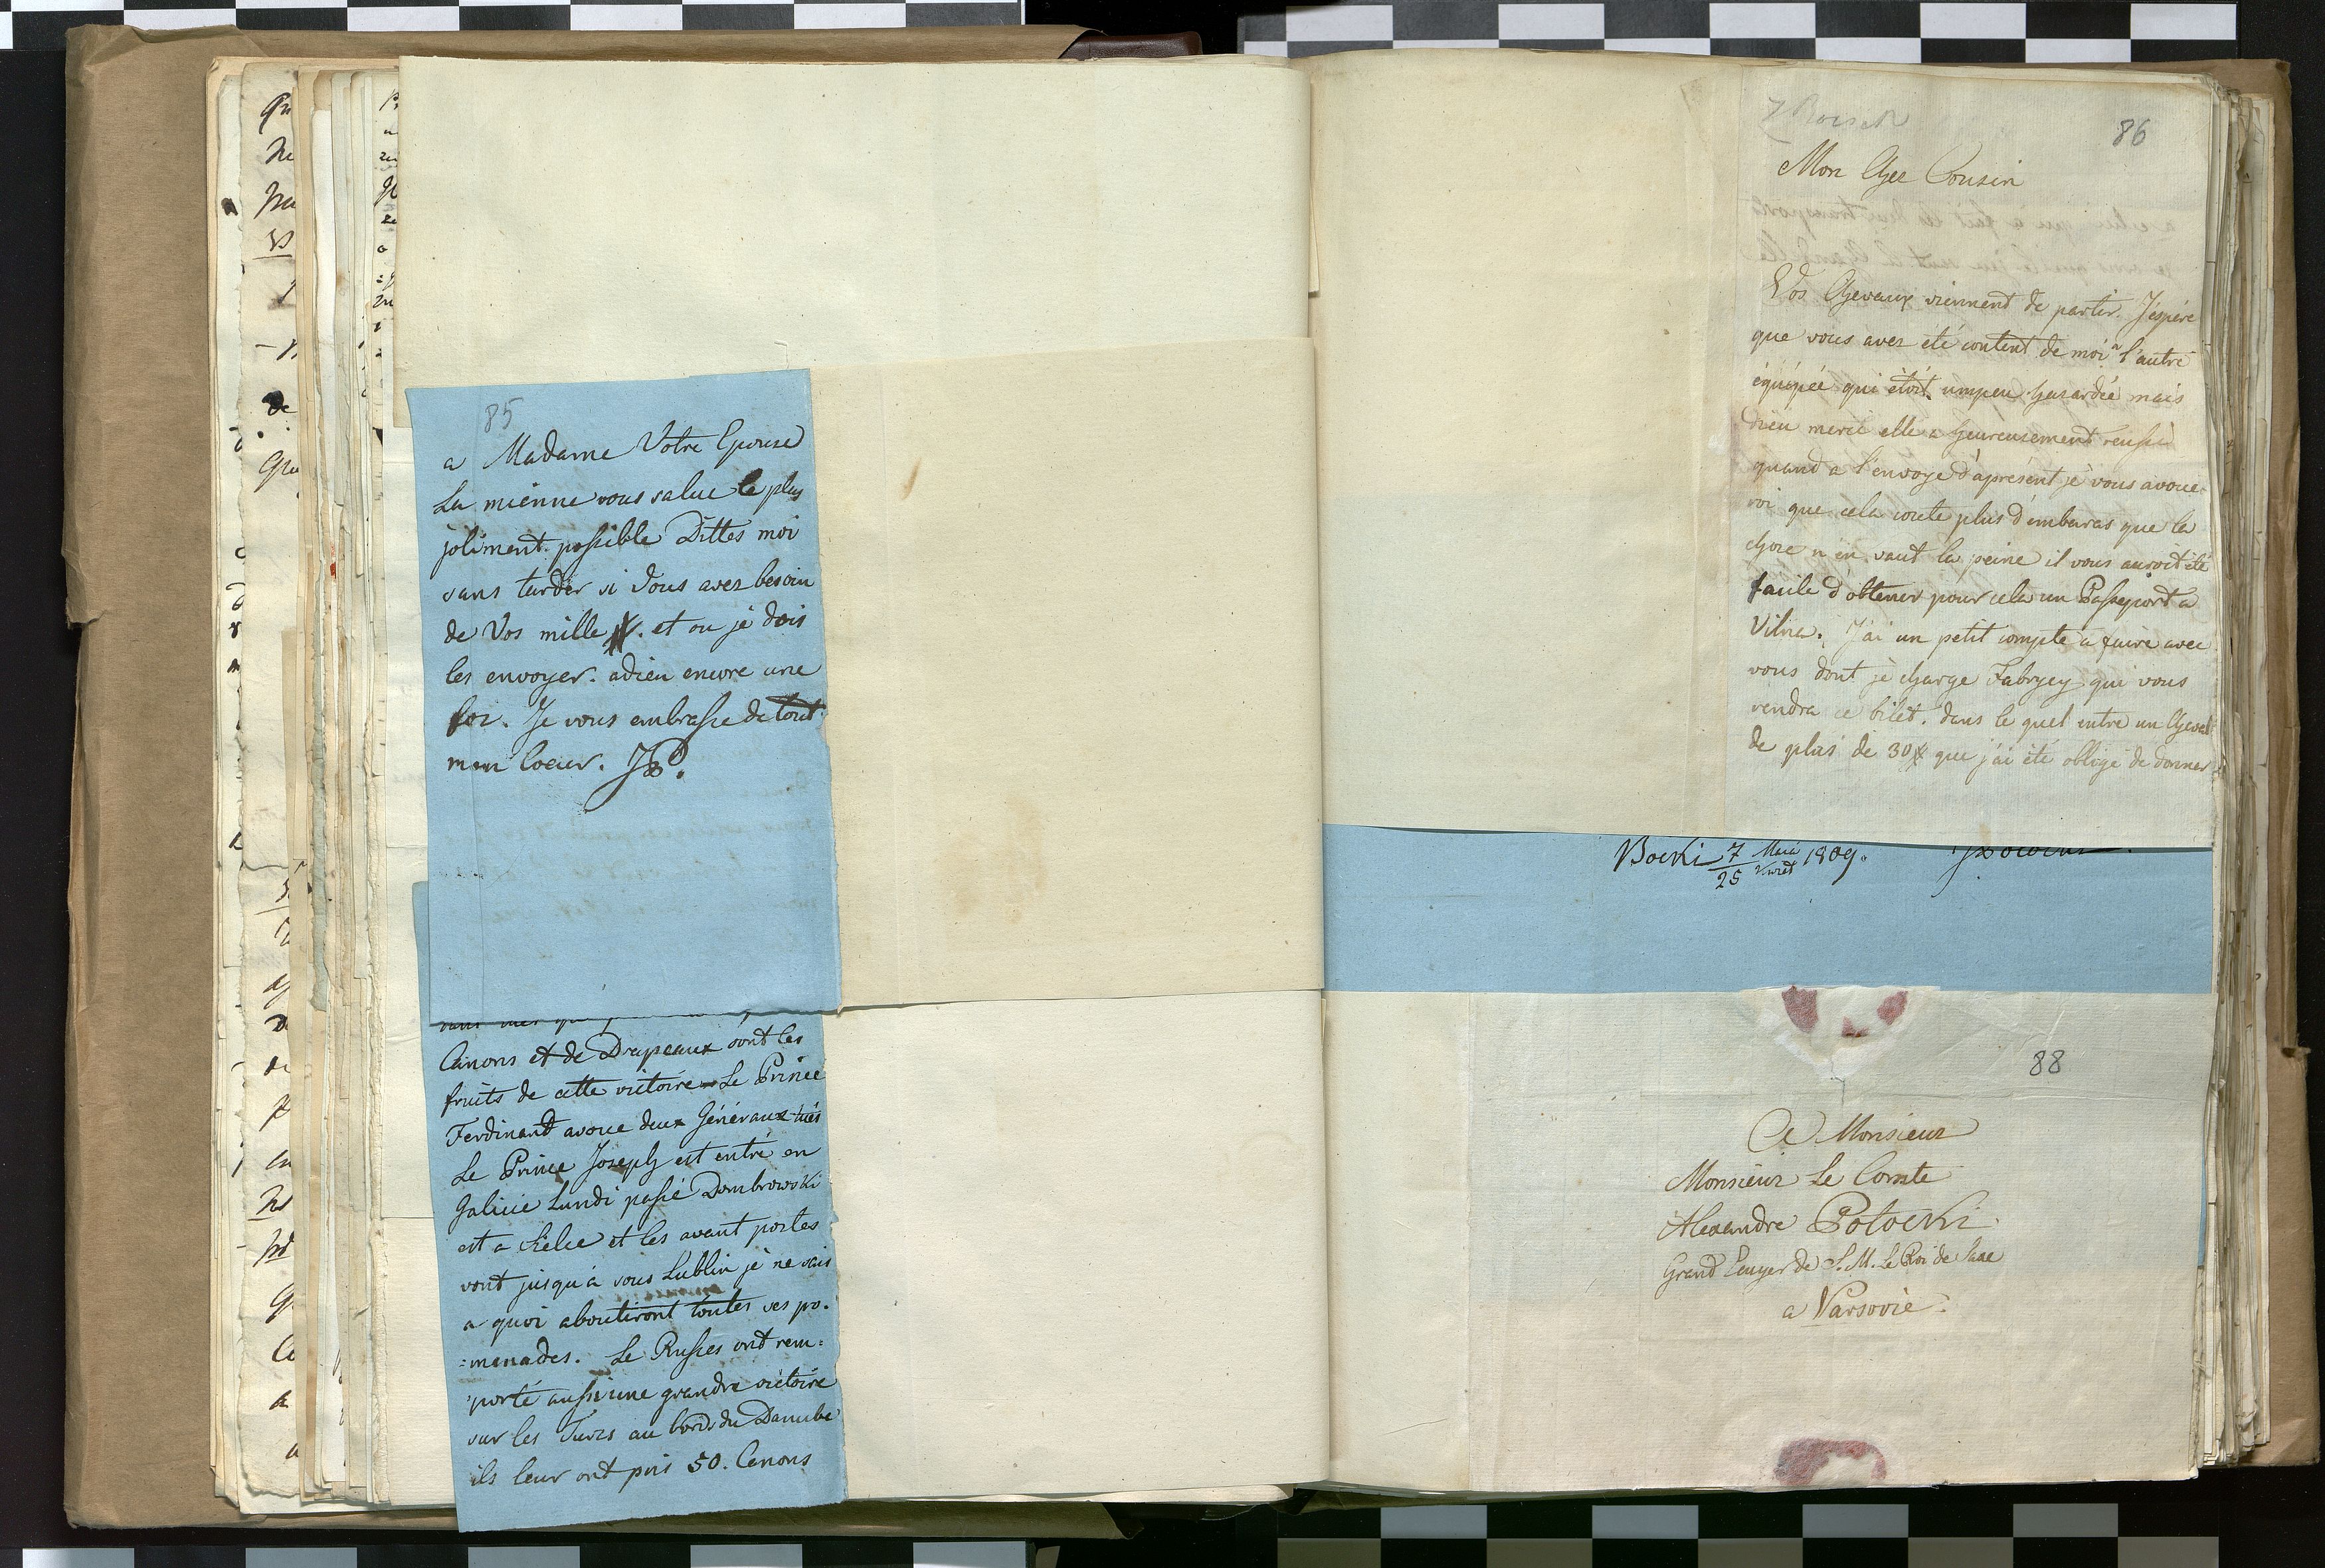 85
a Madame Votre Epouse
La mienne vous salue le plus
joliment possible Dittes moi
sans tarder si Vous avez besoin
de Vos mille #. et ou je dois
les envoyer. adieu encore une
foi. Je vous embrasse de tout
mon Coeur. JP.
Canons et de Drapeaux sont les
fruits de cette victoire Le Prince
Ferdinant avoue deux Généraux tués
Le Prince Joseph est entré en
Galicie Lundi passé Dombrowski
est a Sielce et les avant postes
vont jusqu'à sous Lublin je ne sais
a quoi aboutiront toutes ses pro-
=menades. Le Russes ont rem=
porté aussi une grandre victoire
sur les Turcs au bords du Danube
ils leur ont pris 50. Canons
86
Mon Cher Cousin
Vos Chevaux viennent de partir. J'éspére
que vous avez eté content de moi a l'autre
équipée qui étoit unpeu hasardée mais
Dieu merci elle a heureusement reussi
quand a l'envoye d'apresent je vous avoue-
roi que cela coute plus d'embaras que la
chose n'en vaut la peine il vous auroit été
facile d'obtener pour cela un Passeport a
Vilna. J'ai un petit compte à faire avec
vous dont je charge Fabrycy qui vous
rendra ce bilet. dans le quel entre un Cheval
de plus de 30 # que j'ai été obligé de donner
Bocki 7/25 1809.
88
A Monsieur
Monsieur Le Comte
Alexandre Potocki
Grand Ecuyer de S. M. Le Roi de Saxe
a Varsovie.